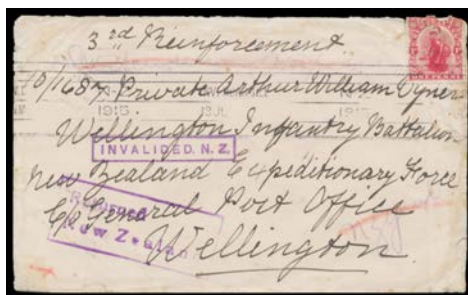 3rd Reinforcement
10/1687 Private Arthur William Dyner
1915
Wellington Infantry Battalion
INVALIDED. N.Z.
New Zealand Expeditionary Force
C/o General Post Office
New Zealand
Wellington